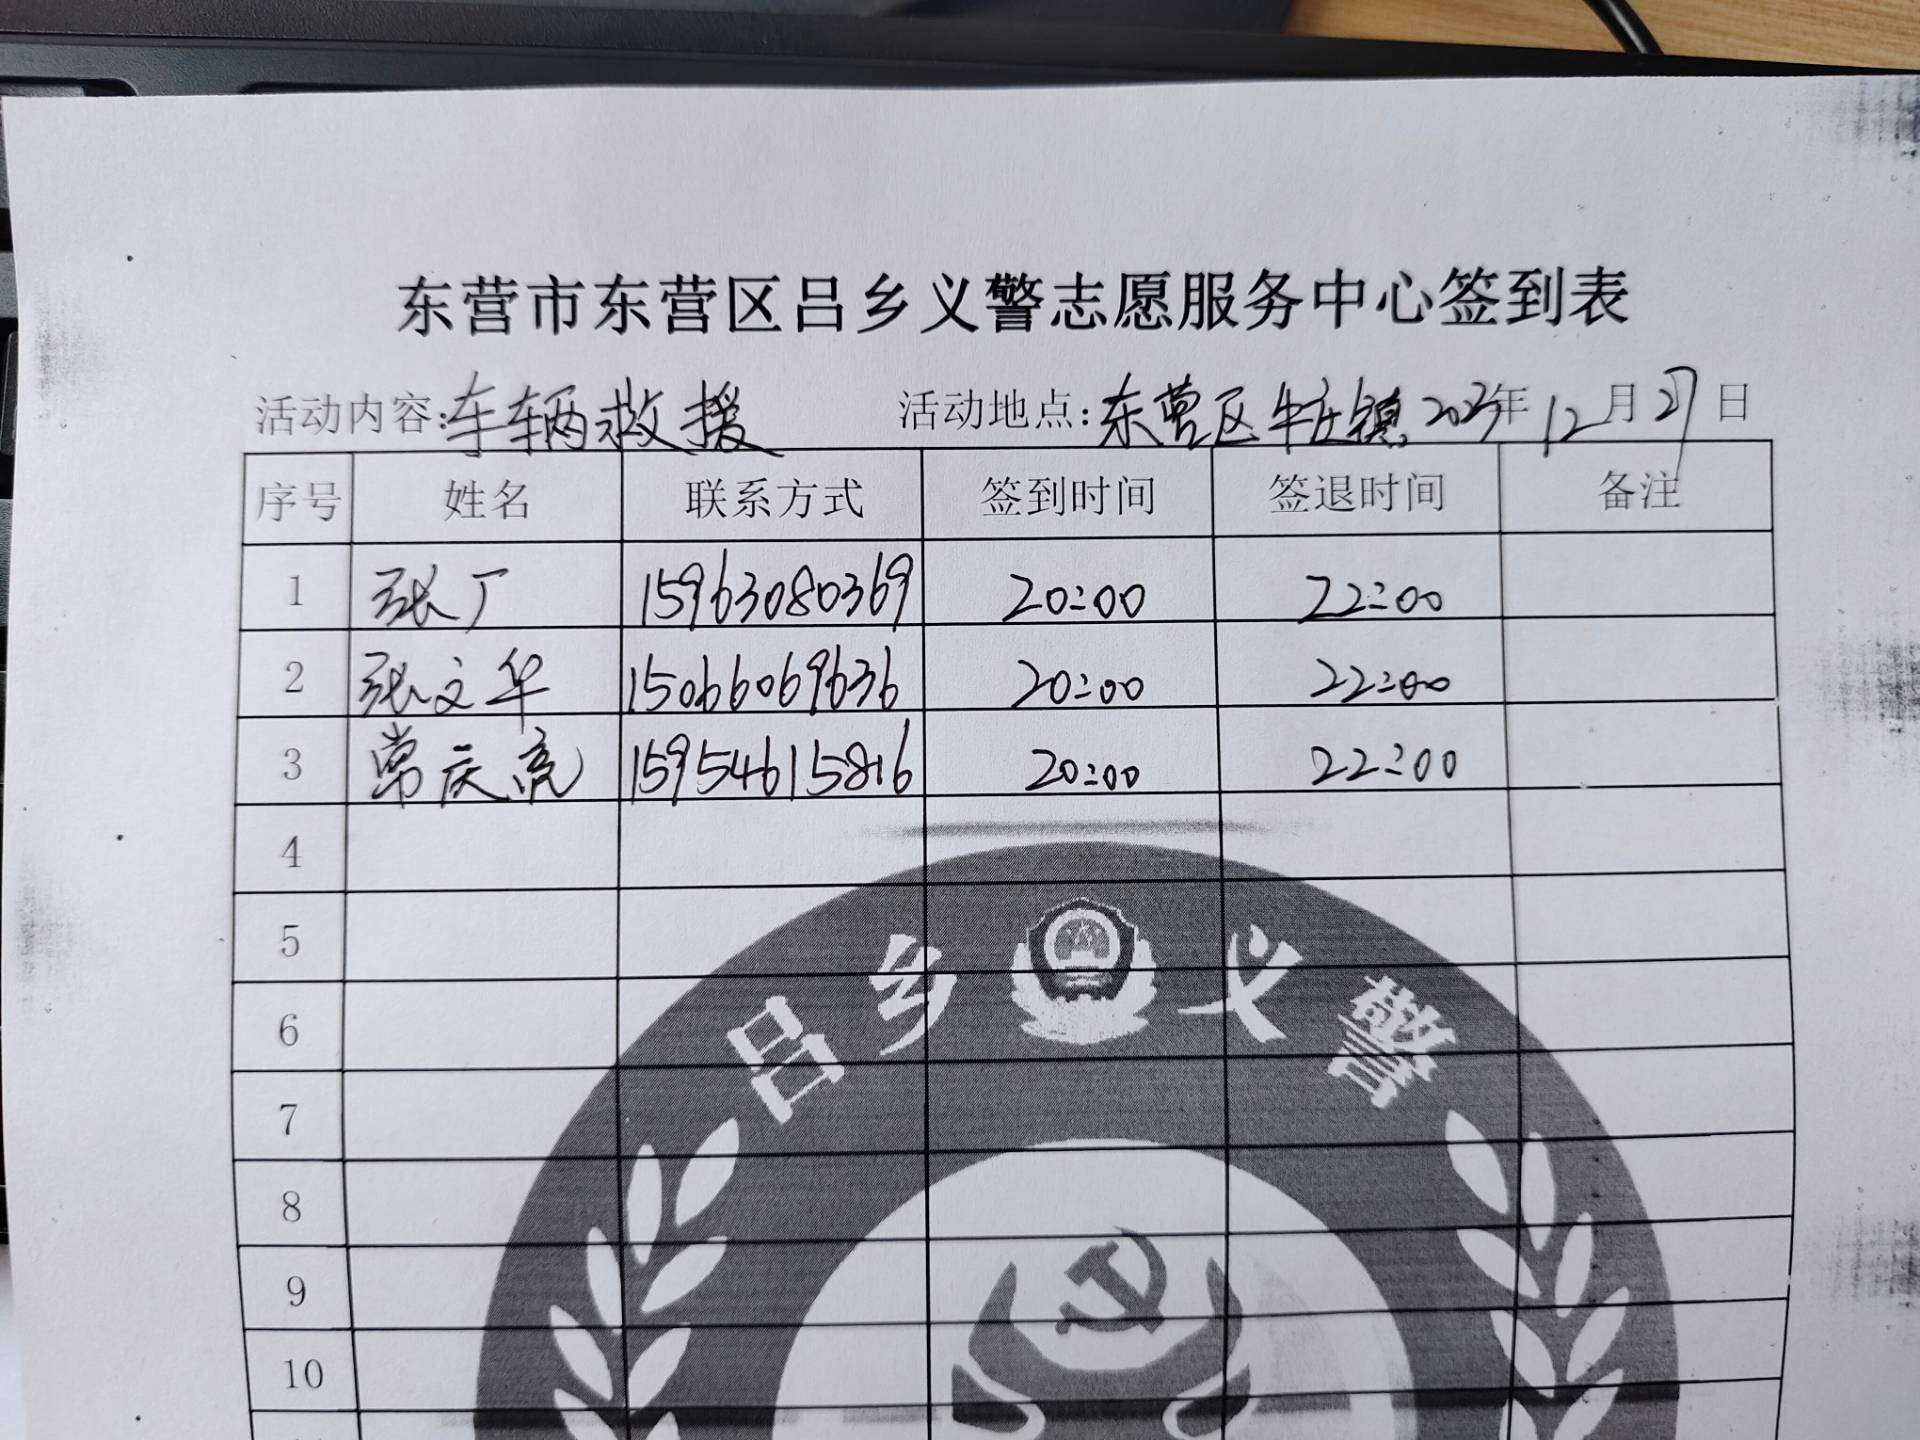 东营市东营区吕乡义警志愿服务中心签到表
活动内容:车辆救援 活动地点:东营区牛庄镇 2023年12月27日
序号 姓名 联系方式 签到时间 签退时间 备注
1 张广 15963080369 20:00 22:00
2 张文华 15066069636 20:00 22:00
3 常庆亮 15954615816 20:00 22:00
4
5
6
7
8
9
10
吕乡义警